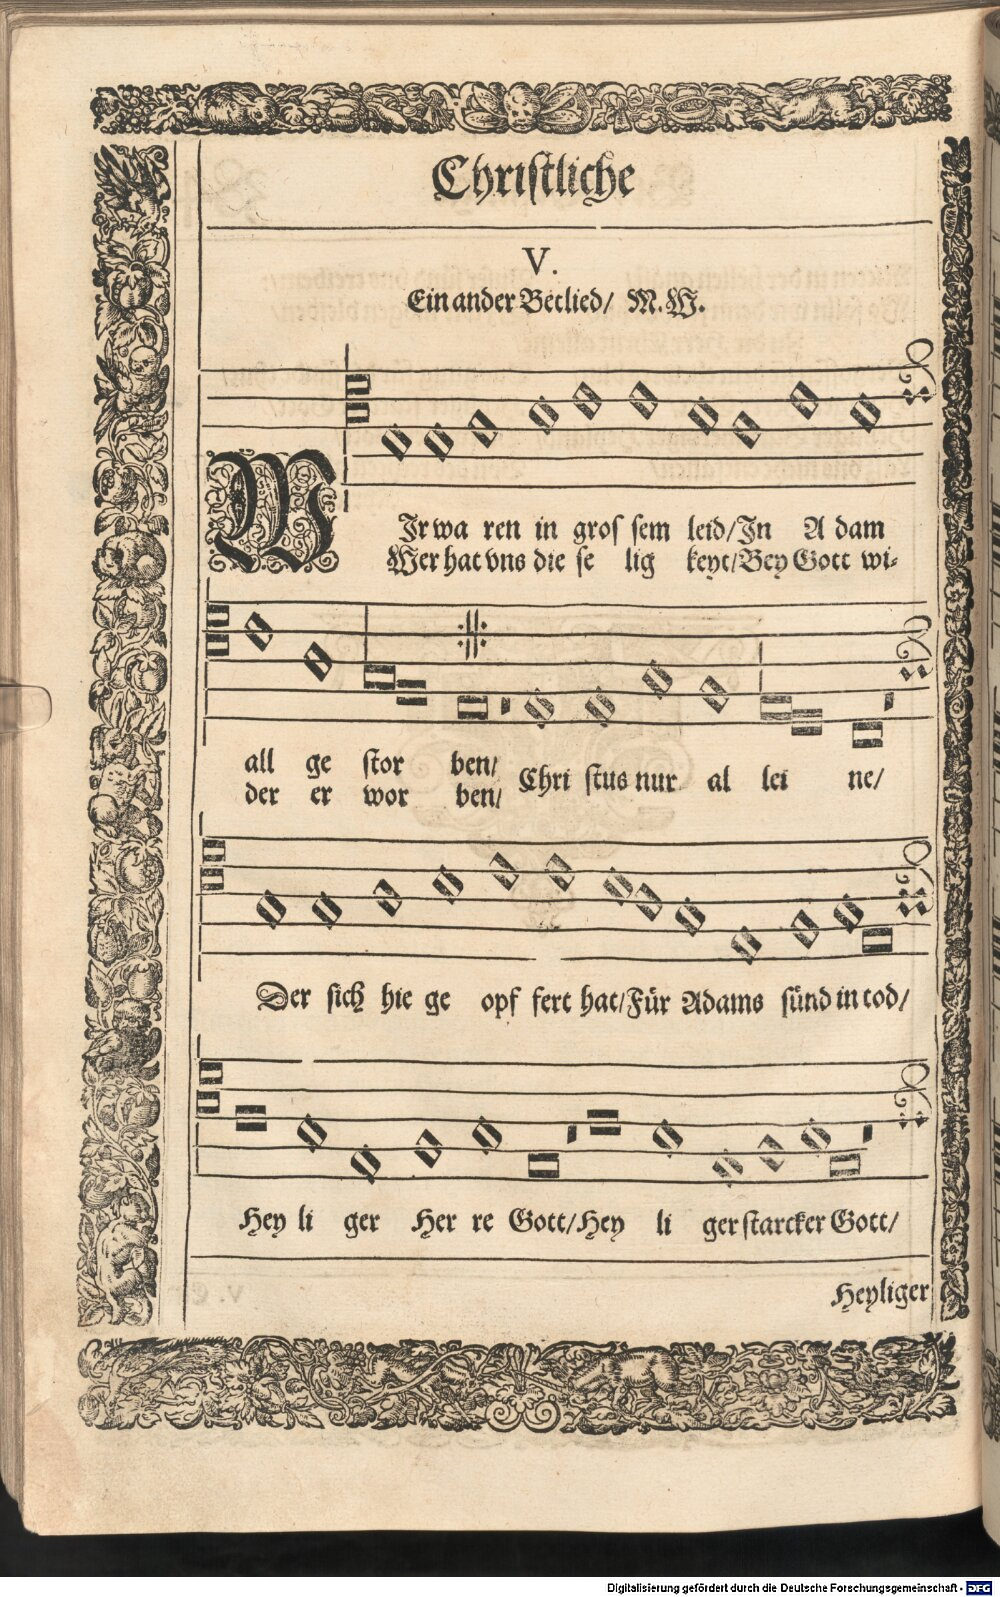 Christliche
V.
Ein ander Betlied/ M. W.
WIr wa ren in gros sem leid/In A dam
Wer hat vns die se lig keyt/Bey Gott wi-
all ge stor ben/
der er wor ben/
Chri stus nur al lei ne/
Der sich hie ge opf fert hat/Für Adams sünd in tod/
Hey li ger Her re Gott/Hey li ger starcker Gott/
Heyliger
Digitalisierung gefördert durch die Deutsche Forschungsgemeinschaft - DFG